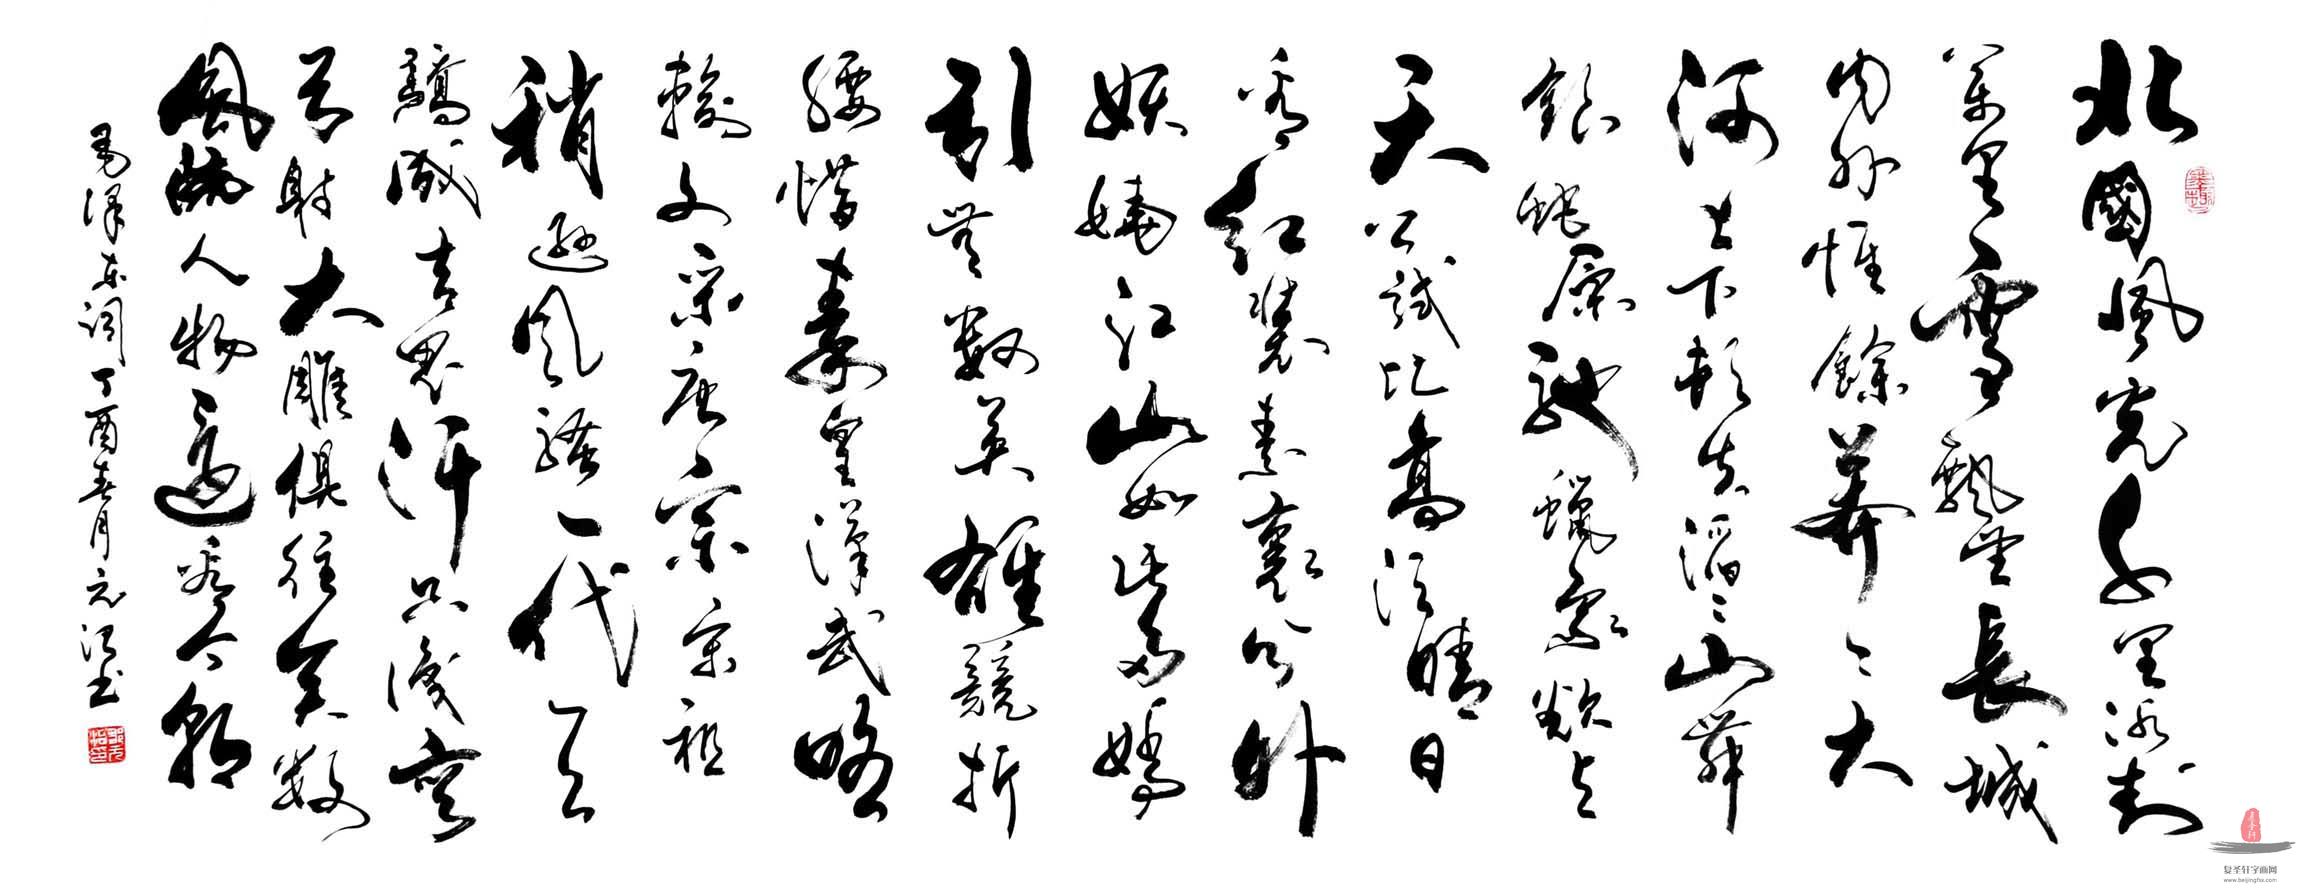 北國風光千里冰封
萬里雪飄望長城
内外惟餘莽〻大
河上下頓失滔〻山舞
銀蛇原馳蠟象欲与
天公試比高須晴日
看紅裝素裹分外
妖嬈江山如此多嬌
引無數英雄競折
腰惜秦皇漢武略
輸文采唐宗宋祖
稍遜風騷一代天
驕成吉思汗只識彎
弓射大雕俱往矣數
風流人物還看今朝
毛泽东词丁酉春月元书
复圣轩字画网
www.beijingfsx.com